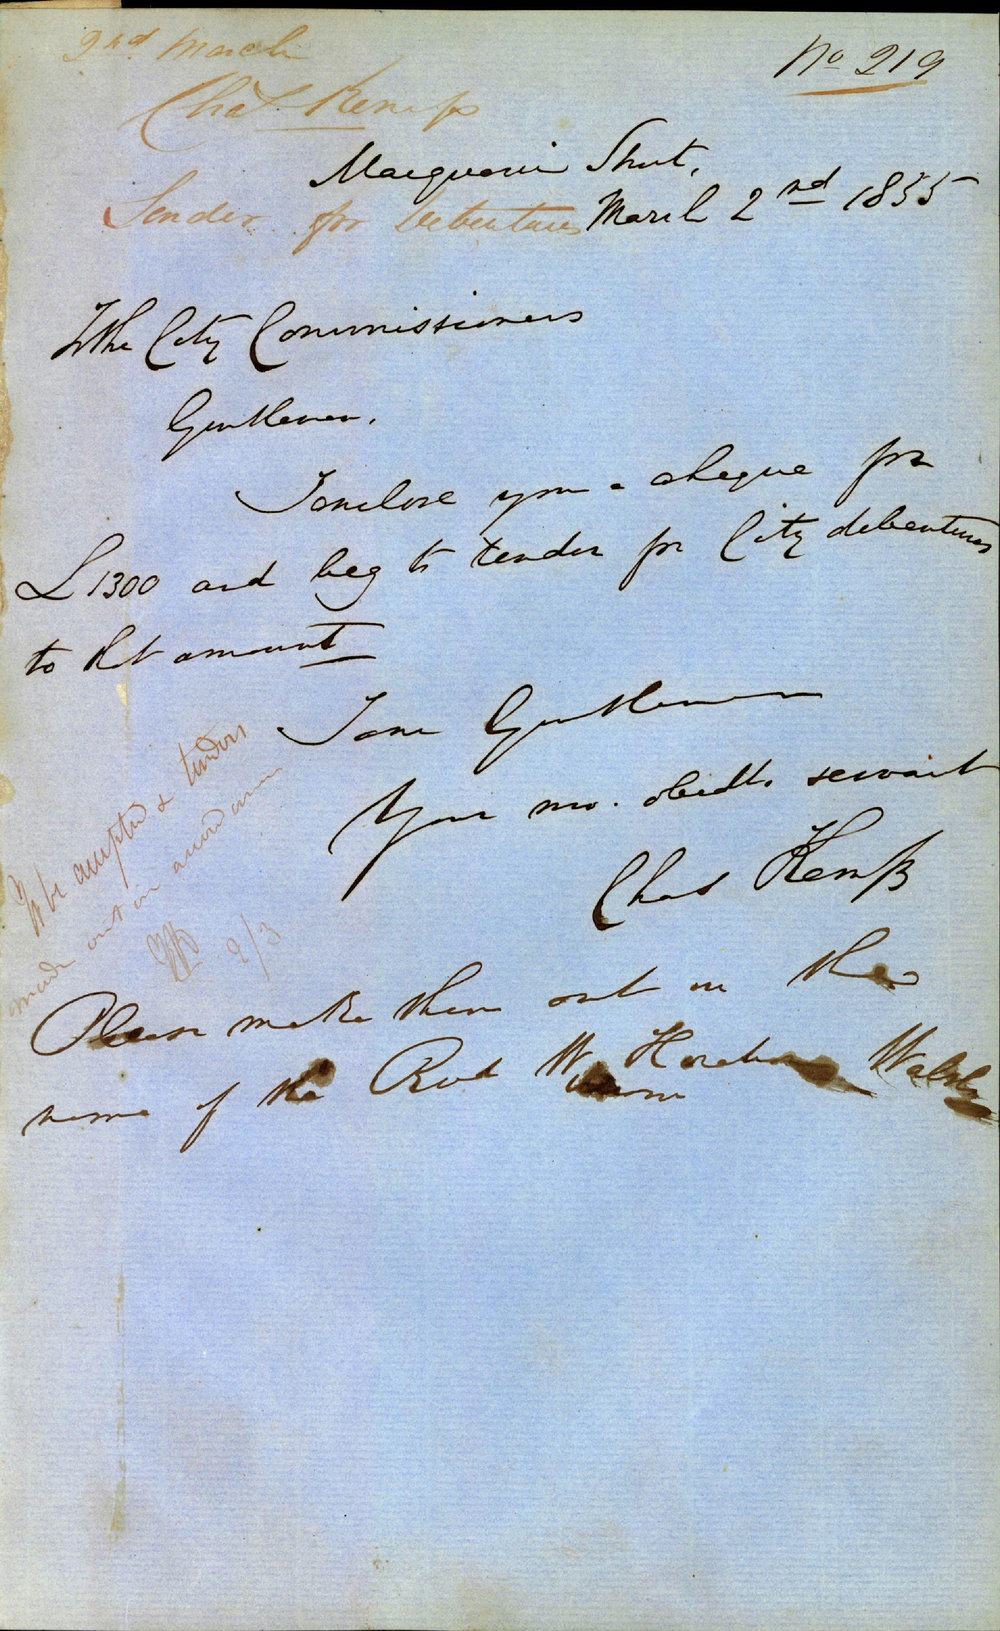 2nd March
No 219
Chas Kemp
Macquarie Street,
Tender for Debentures
March 2nd 1855
To the City Commissioners
Gentlemen,
I enclose you a cheque for
£1300 and beg to tender for City debentures
to that amount
I am Gentlemen
Your mo. obedt. servant
Chas Kemp
To be accepted & tenders
made out in accordance
2/3
Please make them out in the
name of the Revd William Horatio Walsh